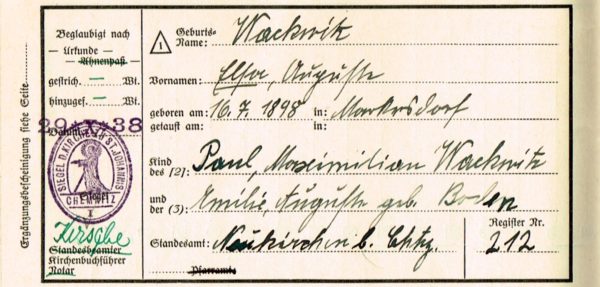 Ergänzungsbescheinigung siehe Seite
Beglaubigt nach
Urkunde
Ahnenpaß
gestrich. — Wt.
hinzugef. — Wt.
29 X 38
Datum
SIEGEL D. KIRCHE ZU ST. JOHANNIS
CHEMNITZ
I
Standesbeamter
Kirchenbuchführer
Notar
1
Geburts-
Name: Wackwitz
Vornamen: Elsa, Auguste
geboren am: 16.7.1898 in: Markersdorf
getauft am: in:
Kind
des (2): Paul, Maximilian Wackwitz
und
der (3): Amilie, Auguste geb. Boden
Standesamt: Neukirchen b. Chtz.
Pfarramt:
Register Nr.
212